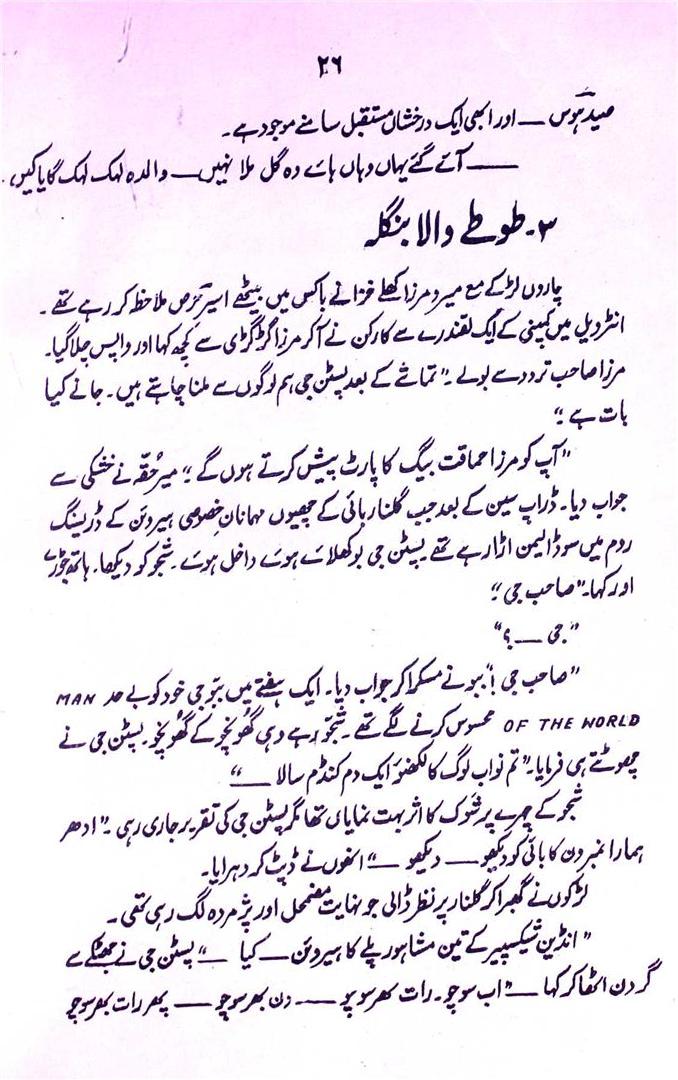 ۲۶
صید ہوس — اور ابھی ایک درخشاں مستقبل سامنے موجود ہے۔
—— آتے گئے یہاں وہاں ہائے وہ گل ملا نہیں — والدہ لہک لہک گایا کیں۔
۳۔ طوطے والا بنگلہ
چاروں لڑکے مع میر و مرزا کھلے خزانے باکس میں بیٹھے اسیرِ حرص ملاحظہ کر رہے تھے۔
انٹرویل میں کمپنی کے ایک لقندرے سے کارکن نے آکر مرزا گڑگڑی سے کچھ کہا اور واپس چلا گیا۔
مرزا صاحب تردد سے بولے۔ "تماشے کے بعد پسٹن جی ہم لوگوں سے ملنا چاہتے ہیں۔ جانے کیا
بات ہے؟"
"آپ کو مرزا حماقت بیگ کا پارٹ پیش کرتے ہوں گے۔" میر حُقہ نے خشکی سے
جواب دیا۔ ڈراپ سین کے بعد جب گلنار بائی کے چھیوں مہمانانِ خصوصی ہیروئن کے ڈریسنگ
روم میں سوڈا لیمن اڑا رہے تھے پسٹن جی بوکھلائے ہوئے داخل ہوئے۔ شجو کو دیکھا۔ ہاتھ جوڑے
اور کہا۔ "صاحب جی۔"
"جی —؟"
"صاحب جی!" ببو نے مسکرا کر جواب دیا۔ ایک ہفتے میں ببو جی خود کو بے حد MAN
OF THE WORLD محسوس کرنے لگے تھے۔ شجو رہے وہی گھونچو کے گھونچو۔ پسٹن جی نے
چھوٹتے ہی فرمایا۔ "تم نواب لوگ کا لکھنؤ ایک دم کنڈم سالا —"
شجو کے چہرے پر شوک کا اثر بہت نمایاں تھا مگر پسٹن جی کی تقریر جاری رہی۔ "ادھر
ہمارا نمبر ون کا بائی کو دیکھو — دیکھو —" انھوں نے ڈپٹ کر دہرایا۔
لڑکوں نے گھبرا کر گلنار پر نظر ڈالی جو نہایت مضمحل اور پژمردہ لگ رہی تھی۔
"انڈین شیکسپیر کے تین مشاہور پلے کا ہیروئن — کیا —" پسٹن جی نے جھٹکے سے
گردن اٹھا کر کہا — "اب سوچو۔ رات بھر سوچو — دن بھر سوچو — پھر رات بھر سوچو